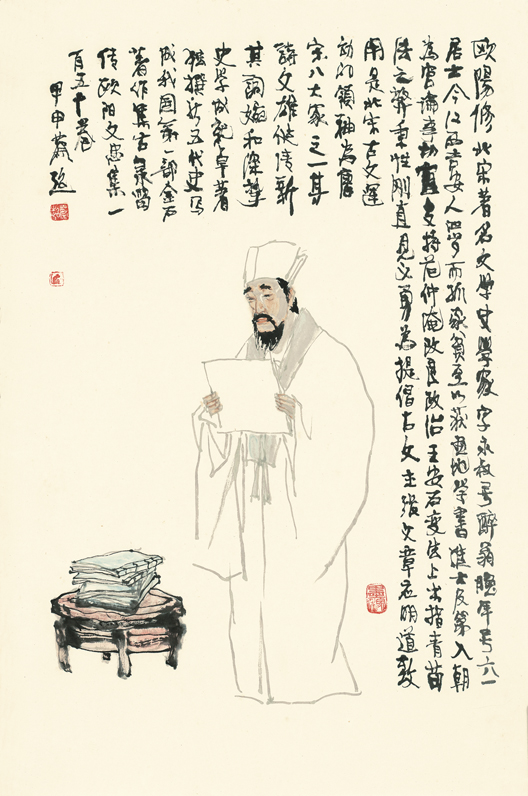 欧陽修北宋著名文學史學家字永叔号醉翁晚年号六一
居士今江西吉安人四岁而孤家貧至以荻画地學書進士及第入朝
為官論事切直支持范仲淹改良政治王安石变法上书指青苗
法之弊秉性刚直見义勇为提倡古文主張文章应明道致
用是北宋古文运
动的領袖为唐
宋八大家之一其
詩文雄健清新
其詞婉和深摯
史学成就卓著
独撰新五代史写
成我国第一部金石
著作集古录留
传欧阳文忠集一
百五十卷
甲申